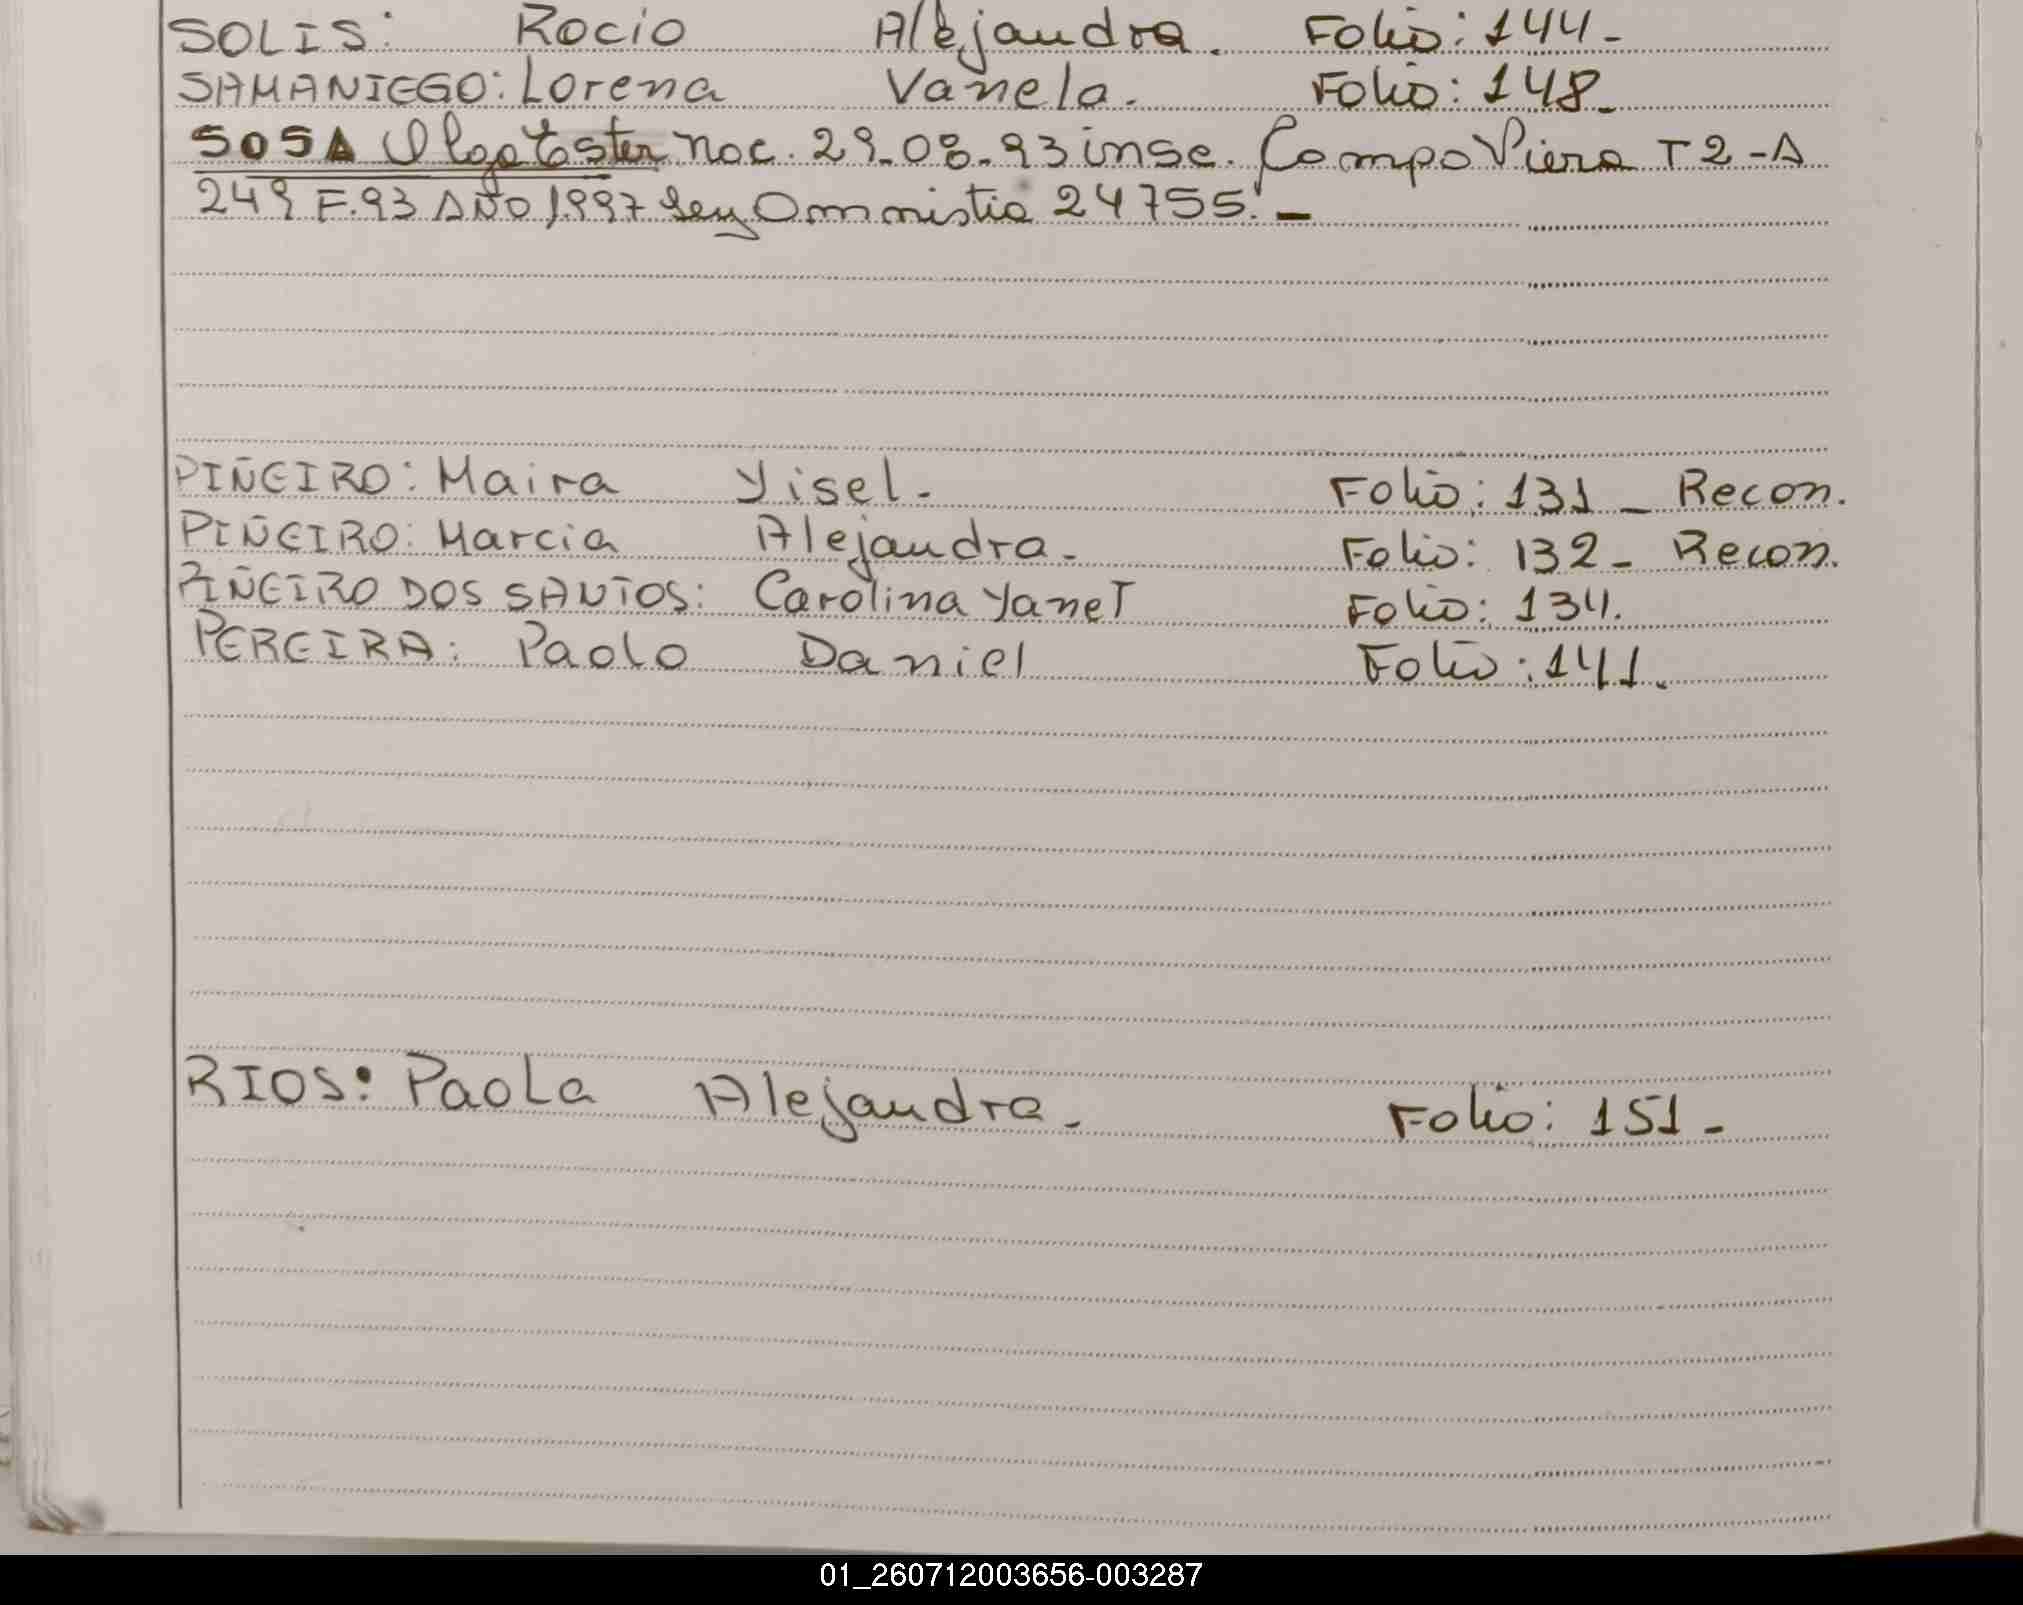 SOLIS: Rocio Alejandra. Folio: 144-
SAMANIEGO: Lorena Vanela. Folio: 148-
SOSA Olga Ester Nac. 29-08-93 insc. Campo Viera T2-A
249 F.93 AÑO 1997 Ley Ammistia 24755.-
PIÑEIRO: Maira Yisel- Folio: 131- Recon.
PIÑEIRO: Marcia Alejandra- Folio: 132- Recon.
PIÑEIRO DOS SANTOS: Carolina Yanet Folio: 134.
PEREIRA: Paolo Daniel Folio: 141.
RIOS: Paola Alejandra- Folio: 151-
01_260712003656-003287